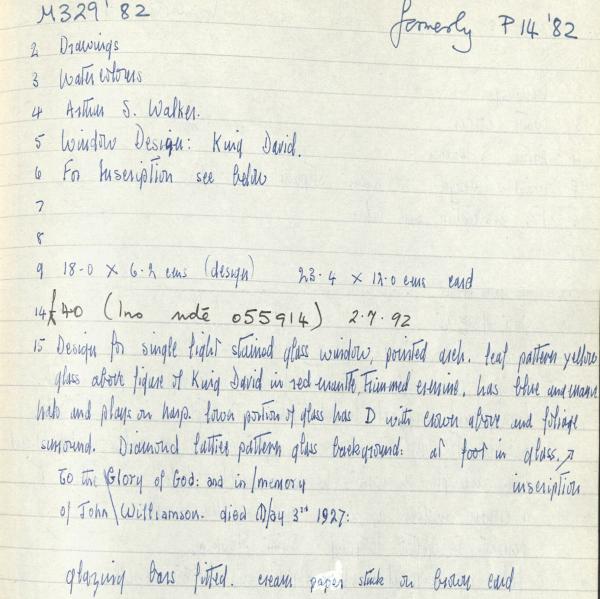 M329'82 formerly P14'82
2 Drawings
3 Watercolours
4 Arthur S. Walker.
5 Window Design: King David.
6 For Inscription see below
7
8
9 18.0 x 6.2 cms (design) 23.4 x 12.0 cms card
14 £40 (Ins note 055914) 2.7.92
15 Design for single light stained glass window, pointed arch. leaf pattern yellow
glass above figure of King David in red mantle, trimmed ermine, has blue and
halo and plays on harp. lower portion of glass has D with crown above and foliage
surround. Diamond lattice pattern glass background: at foot in glass, ↗
To the Glory of God: and in/memory inscription
of John Williamson. died May 3rd 1927:
glazing bars fitted. cream paper stuck on brown card